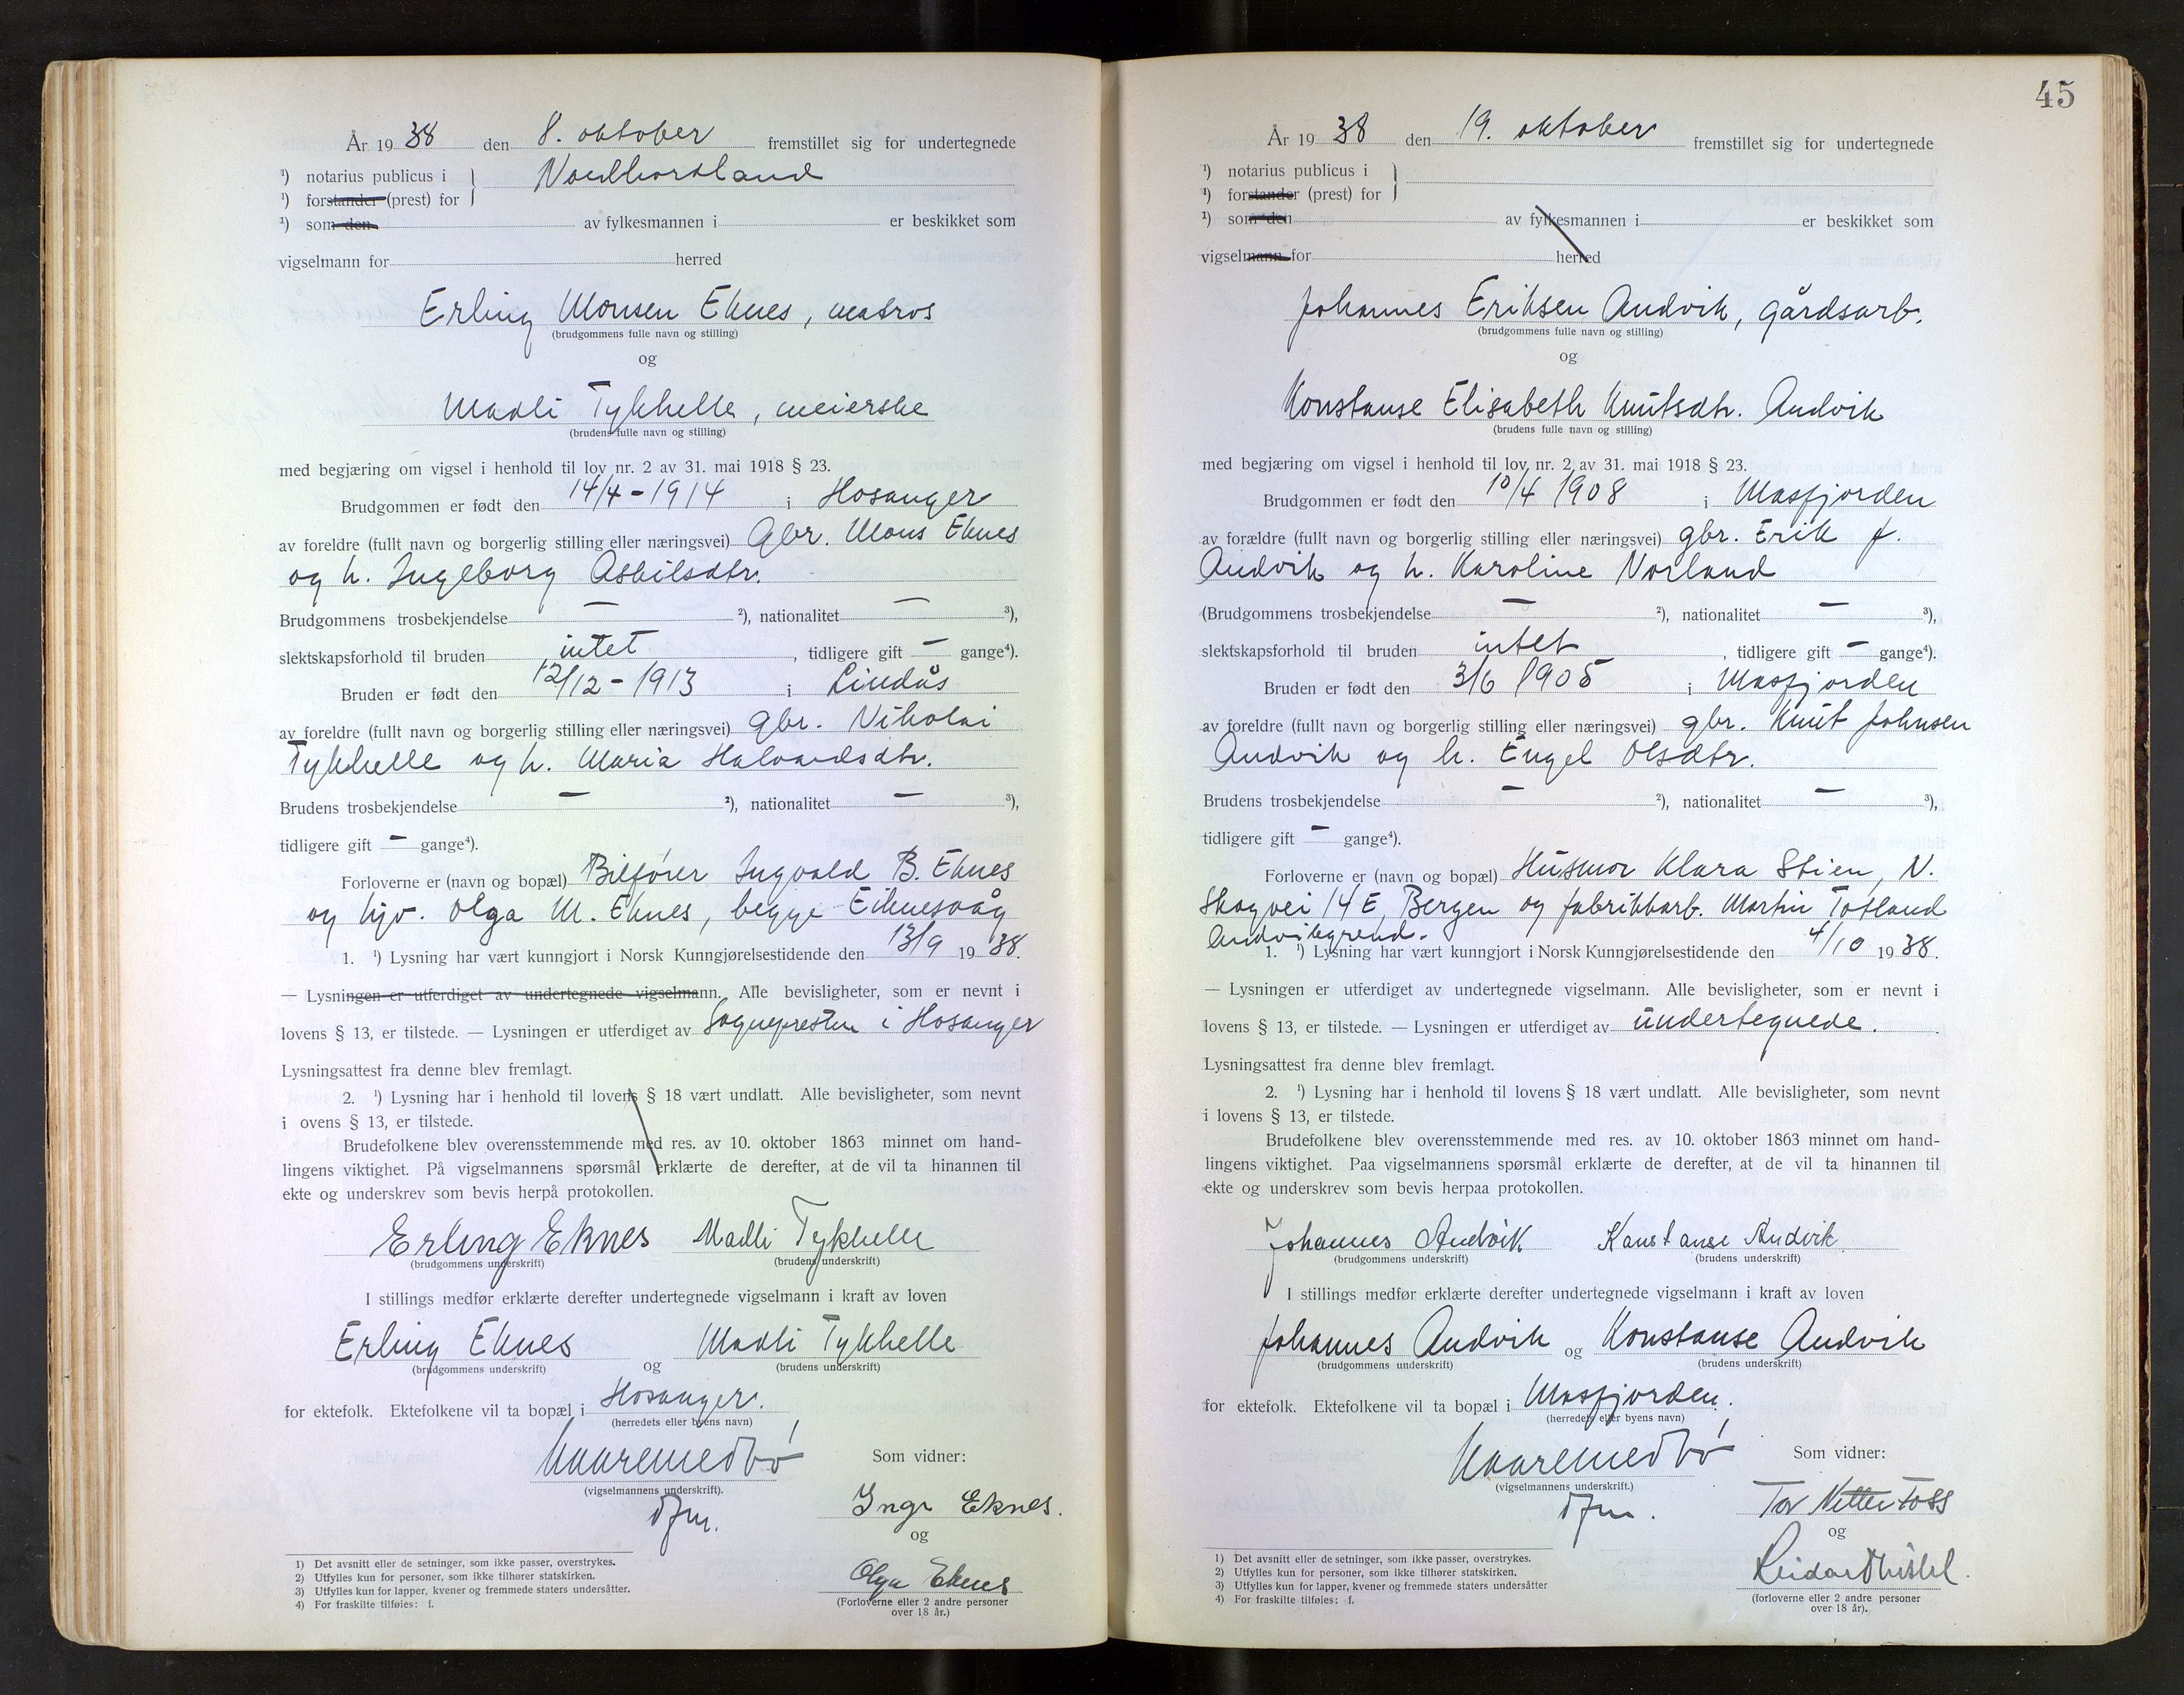 År 19 38 den 8. oktober fremstillet sig for undertegnede
¹) notarius publicus i } Nordhordland
¹) forstander (prest) for
¹) som den av fylkesmannen i er beskikket som
vigselmann for herred
Erling Monsen Eknes, matros
(brudgommens fulle navn og stilling)
og
Madli Tykhelle, meierske
(brudens fulle navn og stilling)
med begjæring om vigsel i henhold til lov nr. 2 av 31. mai 1918 § 23.
Brudgommen er født den 14/4 - 1914 i Hosanger
av foreldre (fullt navn og borgerlig stilling eller næringsvei) Gbr. Mons Eknes
og h. Ingeborg Askilsdtr.
Brudgommens trosbekjendelse — ²), nationalitet — ³),
slektskapsforhold til bruden intet, tidligere gift — gange⁴).
Bruden er født den 12/12 - 1913 i Lindås
av foreldre (fullt navn og borgerlig stilling eller næringsvei) gbr. Nikolai
Tykhelle og h. Maria Halvardsdtr.
Brudens trosbekjendelse — ²), nationalitet — ³),
tidligere gift — gange⁴).
Forloverne er (navn og bopæl) Bilfører Ingvald B. Eknes
og hjv. Olga M. Eknes, begge Eiknesvåg
1. ¹) Lysning har vært kunngjort i Norsk Kunngjørelsestidende den 13/9 19 38.
— Lysningen er utferdiget av undertegnede vigselmann. Alle bevisligheter, som er nevnt i
lovens § 13, er tilstede. — Lysningen er utferdiget av Sognepresten i Hosanger
Lysningsattest fra denne blev fremlagt.
2. ¹) Lysning har i henhold til lovens § 18 vært undlatt. Alle bevisligheter, som nevnt
i ovens § 13, er tilstede.
Brudefolkene blev overensstemmende med res. av 10. oktober 1863 minnet om hand-
lingens viktighet. På vigselmannens spørsmål erklærte de derefter, at de vil ta hinannen til
ekte og underskrev som bevis herpå protokollen.
Erling Eknes Madli Tykhelle
(brudgommens underskrift) (brudens underskrift)
I stillings medfør erklærte derefter undertegnede vigselmann i kraft av loven
Erling Eknes og Madli Tykhelle
(brudgommens underskrift) (brudens underskrift)
for ektefolk. Ektefolkene vil ta bopæl i Hosanger.
(herredets eller byens navn)
Kaaremedbø Som vidner:
(vigselmannens underskrift).
dfm. Inga Eknes.
og
Olga Eknes
(Forloverne eller 2 andre personer
over 18 år.)
1) Det avsnitt eller de setninger, som ikke passer, overstrykes.
2) Utfylles kun for personer, som ikke tilhører statskirken.
3) Utfylles kun for lapper, kvener og fremmede staters undersåtter.
4) For fraskilte tilføies: f.
45
År 19 38 den 19. oktober fremstillet sig for undertegnede
¹) notarius publicus i }
¹) forstander (prest) for
¹) som den av fylkesmannen i er beskikket som
vigselmann for herred
Johannes Eriksen Andvik, gårdsarb.
(brudgommens fulle navn og stilling)
og
Konstanse Elisabeth Knutsdtr. Andvik
(brudens fulle navn og stilling)
med begjæring om vigsel i henhold til lov nr. 2 av 31. mai 1918 § 23.
Brudgommen er født den 10/4 1908 i Masfjorden
av forældre (fullt navn og borgerlig stilling eller næringsvei) gbr. Erik J.
Andvik og h. Karoline Norland
(Brudgommens trosbekjendelse — ²), nationalitet — ³),
slektskapsforhold til bruden intet, tidligere gift — gange⁴).
Bruden er født den 3/6 1905 i Masfjorden
av foreldre (fullt navn og borgerlig stilling eller næringsvei) gbr. Knut Johnsen
Andvik og h. Engel Olsdtr.
Brudens trosbekjendelse — ²), nationalitet — ³),
tidligere gift — gange⁴).
Forloverne er (navn og bopæl) Husmor Klara Stien, N.
Skogvei 14 E, Bergen og fabrikkarb. Martin Totland
Andvikgrend.
1. ¹) Lysning har vært kunngjort i Norsk Kunngjørelsestidende den 4/10 19 38.
— Lysningen er utferdiget av undertegnede vigselmann. Alle bevisligheter, som er nevnt i
lovens § 13, er tilstede. — Lysningen er utferdiget av undertegnede.
Lysningsattest fra denne blev fremlagt.
2. ¹) Lysning har i henhold til lovens § 18 vært undlatt. Alle bevisligheter, som nevnt
i lovens § 13, er tilstede.
Brudefolkene blev overensstemmende med res. av 10. oktober 1863 minnet om hand-
lingens viktighet. Paa vigselmannens spørsmål erklærte de derefter, at de vil ta hinannen til
ekte og underskrev som bevis herpaa protokollen.
Johannes Andvik Konstanse Andvik
(brudgommens underskrift) (brudens underskrift)
I stillings medfør erklærte derefter undertegnede vigselmann i kraft av loven
Johannes Andvik og Konstanse Andvik
(brudgommens underskrift) (brudens underskrift)
for ektefolk. Ektefolkene vil ta bopæl i Masfjorden.
(herredets eller byens navn)
Kaaremedbø Som vidner:
(vigselmannens underskrift).
dfm. Tor
og
Reidar
(forloverne eller 2 andre personer
over 18 år).
1) Det avsnitt eller de setninger, som ikke passer, overstrykes.
2) Utfylles kun for personer, som ikke tilhører statskirken.
3) Utfylles kun for lapper, kvener og fremmede staters undersåtter
4) For fraskilte tilføies: f.